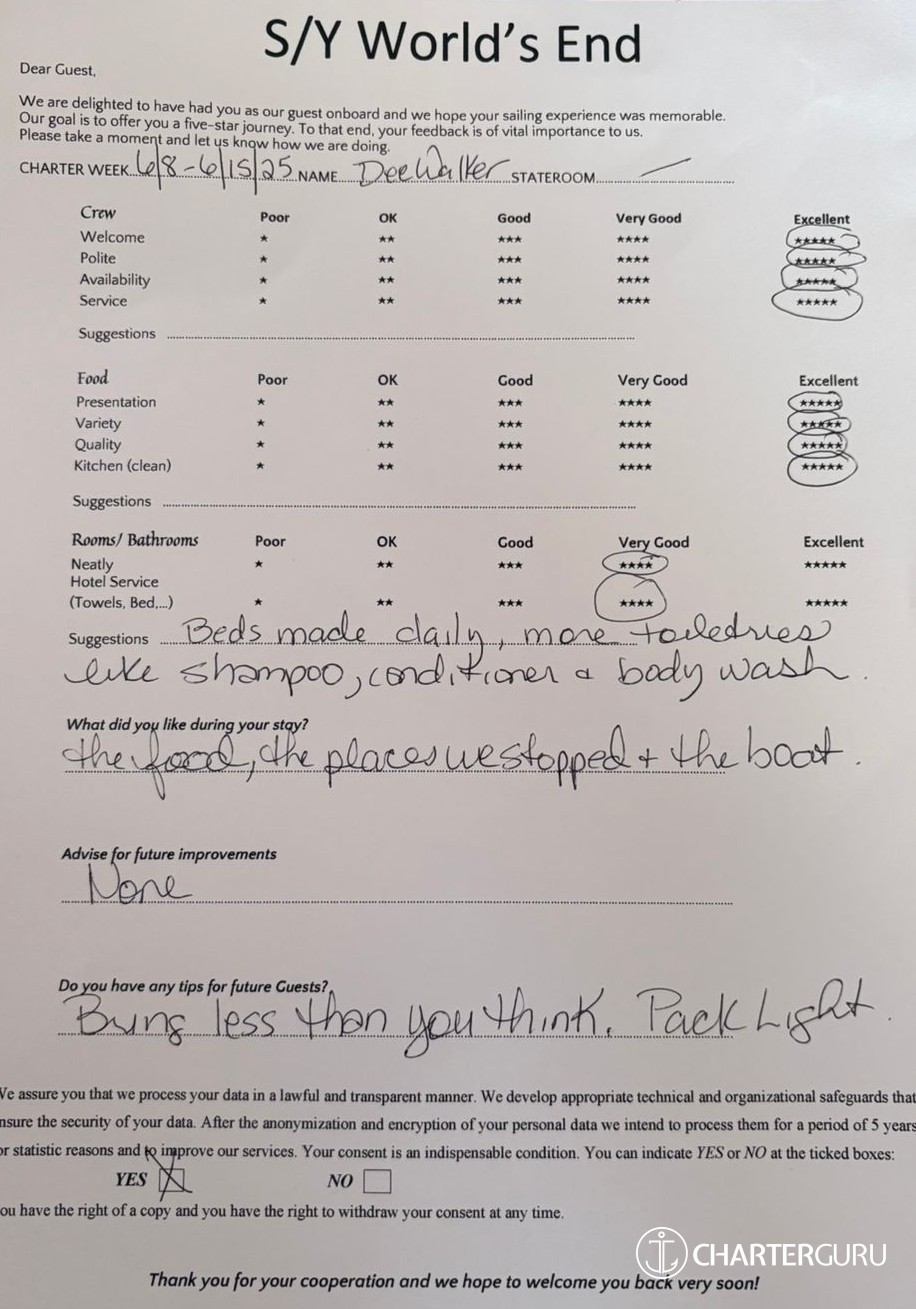 S/Y World's End
Dear Guest,
We are delighted to have had you as our guest onboard and we hope your sailing experience was memorable.
Our goal is to offer you a five-star journey. To that end, your feedback is of vital importance to us.
Please take a moment and let us know how we are doing.
CHARTER WEEK 6/8-6/15/25 NAME Dee Walker STATEROOM —
Crew Poor OK Good Very Good Excellent
Welcome ★ ★★ ★★★ ★★★★ ★★★★★
Polite ★ ★★ ★★★ ★★★★ ★★★★★
Availability ★ ★★ ★★★ ★★★★ ★★★★★
Service ★ ★★ ★★★ ★★★★ ★★★★★
Suggestions
Food Poor OK Good Very Good Excellent
Presentation ★ ★★ ★★★ ★★★★ ★★★★★
Variety ★ ★★ ★★★ ★★★★ ★★★★★
Quality ★ ★★ ★★★ ★★★★ ★★★★★
Kitchen (clean) ★ ★★ ★★★ ★★★★ ★★★★★
Suggestions
Rooms/ Bathrooms Poor OK Good Very Good Excellent
Neatly ★ ★★ ★★★ ★★★★ ★★★★★
Hotel Service
(Towels, Bed,...) ★ ★★ ★★★ ★★★★ ★★★★★
Suggestions Beds made daily, more toiledries
like shampoo, conditioner & body wash.
What did you like during your stay?
the food, the places we stopped + the boat.
Advise for future improvements
None
Do you have any tips for future Guests?
Bring less than you think. Pack Light.
We assure you that we process your data in a lawful and transparent manner. We develop appropriate technical and organizational safeguards that
nsure the security of your data. After the anonymization and encryption of your personal data we intend to process them for a period of 5 years
or statistic reasons and to improve our services. Your consent is an indispensable condition. You can indicate YES or NO at the ticked boxes:
YES NO
ou have the right of a copy and you have the right to withdraw your consent at any time.
CHARTERGURU
Thank you for your cooperation and we hope to welcome you back very soon!